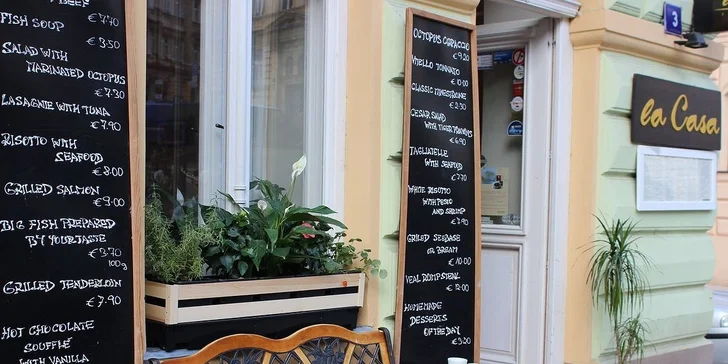 BEEF
€ 7.70
FISH SOUP
€ 3.50
SALAD WITH
MARINATED OCTOPUS
€ 7.30
LASAGNE WITH TUNA
€ 7.90
RISOTTO WITH
SEAFOOD
€ 8.00
GRILLED SALMON
€ 9.00
BIG FISH PREPARED
BY YOUR TASTE
€ 3.70
100g
GRILLED TENDERLOIN
€ 7.90
HOT CHOCOLATE
SOUFFLÉ
WITH VANILLA
OCTOPUS CARPACCIO
€ 9.20
VITELLO TONNATO
€ 10.00
CLASSIC MINESTRONE
€ 2.50
CESAR SALAD
WITH TIGER PRAWNS
€ 6.90
TAGLIATELLE
WITH SEAFOOD
€ 7.70
WHITE RISOTTO
WITH PESTO
AND SHRIMP
€ 7.90
GRILLED SEABASE
OR BREAM
€ 10.00
VEAL RUMPSTEAK
€ 12.00
HOMEMADE
DESSERTS
OF THE DAY
€ 3.20
3
la Casa